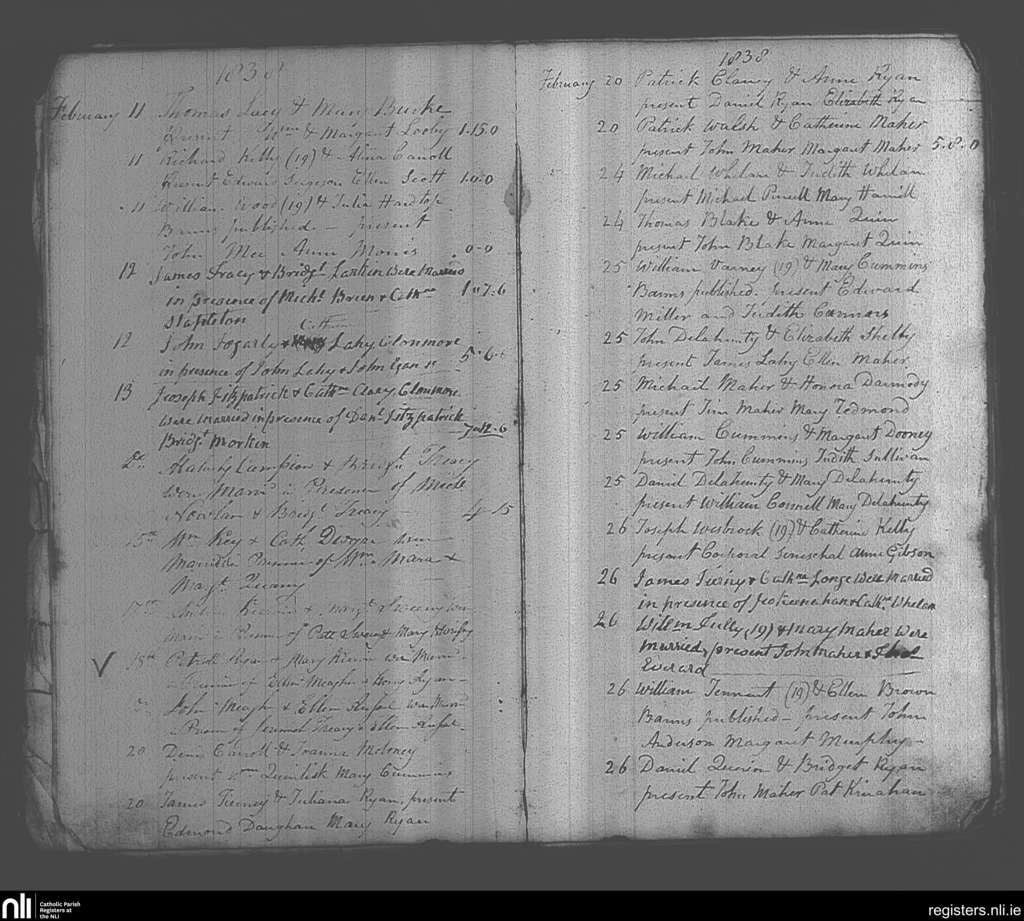 1838
February 11 Thomas Lacy & Mary Burke
Present Wm & Margaret Looby 1.15.0
11 Richard Kelly (19) & Alicia Carroll
Present Edward Ferguson Ellen Scott 1.0.0
11 William Wood (19) & Julia Hardtop
Banns published - present
John Mee Ann Morris 0-0
12 James Tracy & Bridgt Larkin Were Married
in presence of Michl Brien & Cathne 1"7:6
Stapleton
Cathne
12 John Fogarty & Lahy Clonmore
in presence of John Lahy & John Egan Sr 5-6
13 Joseph Fitzpatrick & Cathne Cleary Clonmore
Were Married in presence of Danl Fitzpatrick
Bridgt Morkin 7-12-6
Do Malachy Campion & Bridgt Treacy
Were Marrd in Presence of Michl
Nowlan & Bridgt Treacy 4-15
15th Wm Key & Cath Dwyer were
Married in Presence of Wm Mara &
Margt
17th & Margt were
in Presence of Patt & Mary
18th Patrick Ryan & Mary were Marrd
in Presence of Edmd Meagher & Honor Ryan
Do John Meagher & Ellen were Marrd
in Presence of Treacy & Ellen
20 Denis Carroll & Joanna Moloney
present Wm Quinlisk Mary Cummins
20 James Tierney & Juliana Ryan, present
Edmond Daughan Mary Ryan
1838
February 20 Patrick Clancy & Anne Ryan
present Daniel Ryan Elizabeth Ryan
20 Patrick Walsh & Catherine Maher
present John Maher Margaret Maher 5.8.0
24 Michael Whelan & Judith Whelan
present Michael Purcell Mary Hamill
24 Thomas Blake & Anne Quin
present John Blake Margaret Quin
25 William Varney (19) & Mary Cummins
Banns published. Present Edward
Miller and Judith Connors
25 John Delahunty & Elizabeth Shelly
present James Lahy Ellen Maher
25 Michael Maher & Honora Darmody
present Tim Maher Mary Redmond
25 William Cummins & Margaret Dooney
present John Cummins Judith Sullivan
25 Daniel Delahunty & Mary Delahunty
present William Connell Mary Delahunty
26 Joseph Westrock (19) & Catherine Kelly
present Corporal Seneschal Anne Gibson
26 James Tierny & Cathne Longe Were Married
in presence of Jas Keenahan & Cathne Whelan
26 Willm Jully (19) & Mary Maher Were
Married, present John Maher &
Everard
26 William Tennant (19) & Ellen Brown
Banns published - present John
Anderson Margaret Murphy
26 Daniel Quinn & Bridget Ryan
present John Maher Pat Kinahan
nli Catholic Parish
Registers at
the NLI
registers.nli.ie